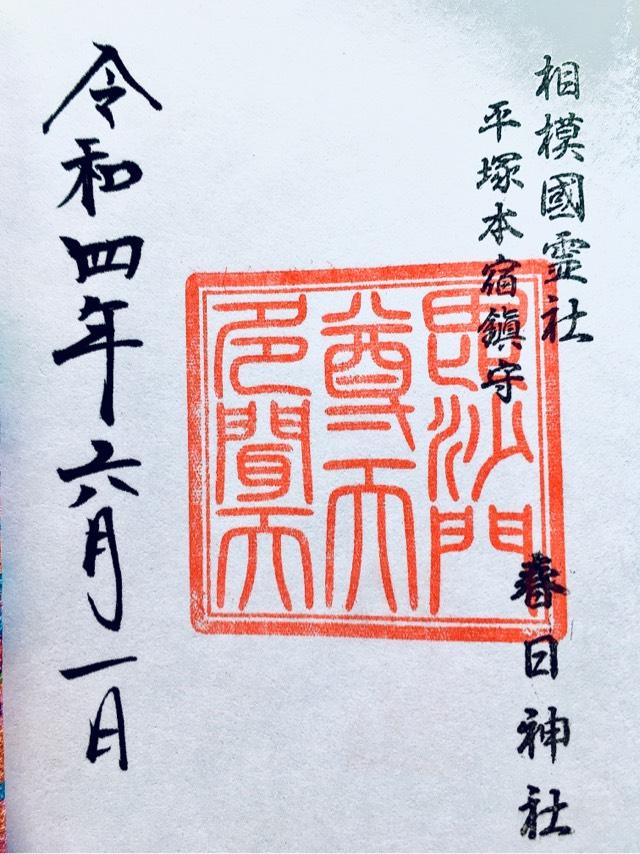 相模國霊社
平塚本宿鎮守
春日神社
毘沙門
尊天
多聞天
令和四年六月一日